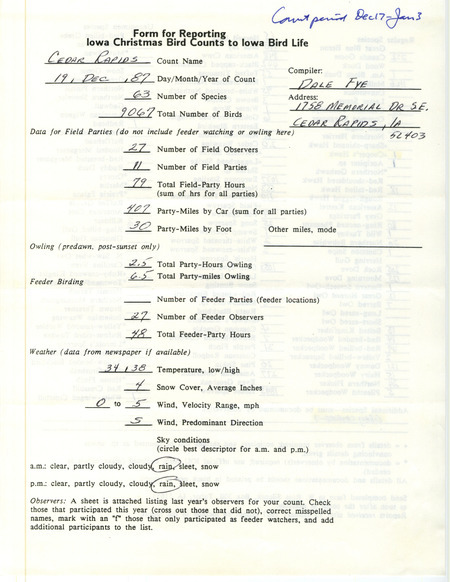 Count period Dec 17-Jan 3
Form for Reporting
Iowa Christmas Bird Counts to Iowa Bird Life
CEDAR RAPIDS Count Name
19, DEC, 87 Day/Month/Year of Count
63 Number of Species
9067 Total Number of Birds
Compiler:
DALE FYE
Address:
1758 MEMORIAL DR S.E.
CEDAR RAPIDS, IA
52403
Data for Field Parties (do not include feeder watching or owling here)
27 Number of Field Observers
11 Number of Field Parties
79 Total Field-Party Hours
(sum of hrs for all parties)
407 Party-Miles by Car (sum for all parties)
30 Party-Miles by Foot Other miles, mode
Owling (predawn, post-sunset only)
2.5 Total Party-Hours Owling
6.5 Total Party-miles Owling
Feeder Birding
Number of Feeder Parties (feeder locations)
27 Number of Feeder Observers
48 Total Feeder-Party Hours
Weather (data from newspaper if available)
34, 38 Temperature, low/high
4 Snow Cover, Average Inches
0 to 5 Wind, Velocity Range, mph
S Wind, Predominant Direction
Sky conditions
(circle best descriptor for a.m. and p.m.)
a.m.: clear, partly cloudy, cloudy, rain, sleet, snow
p.m.: clear, partly cloudy, cloudy, rain, sleet, snow
Observers: A sheet is attached listing last year's observers for your count. Check
those that participated this year (cross out those that did not), correct misspelled
names, mark with an "f" those that only participated as feeder watchers, and add
additional participants to the list.